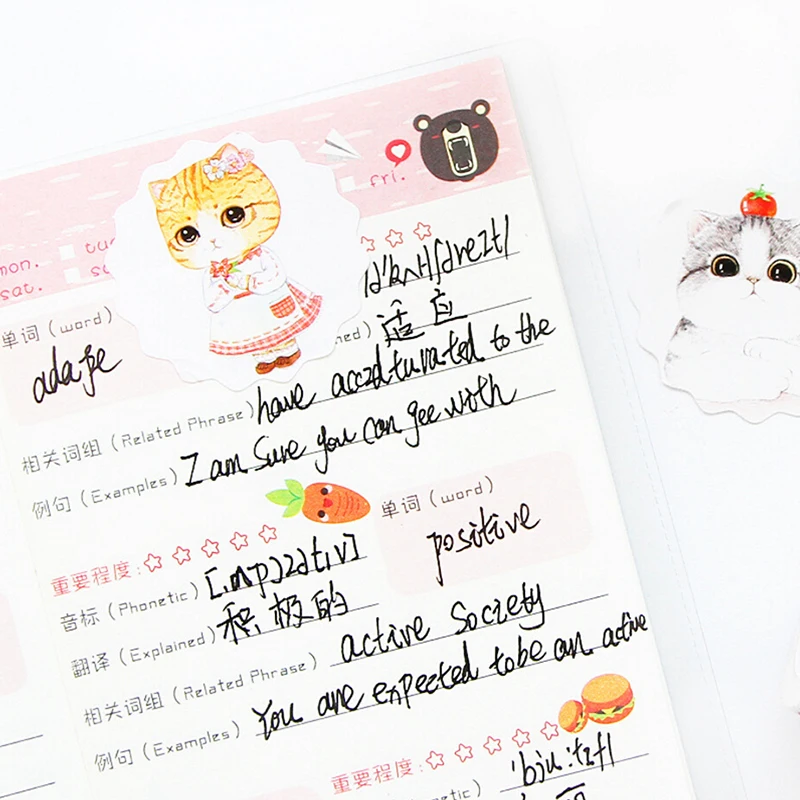 fri.
mon.
sat.
单词（word）
适应
have acczdturated to the
相关词组（Related Phrase）
I am Sure you can gee with
例句（Examples）
单词（word）
positive
重要程度：
音标（Phonetic）
积极的
翻译（Explained）
active Society
相关词组（Related Phrase）
You are expected tobe an active
例句（Examples）
重要程度：